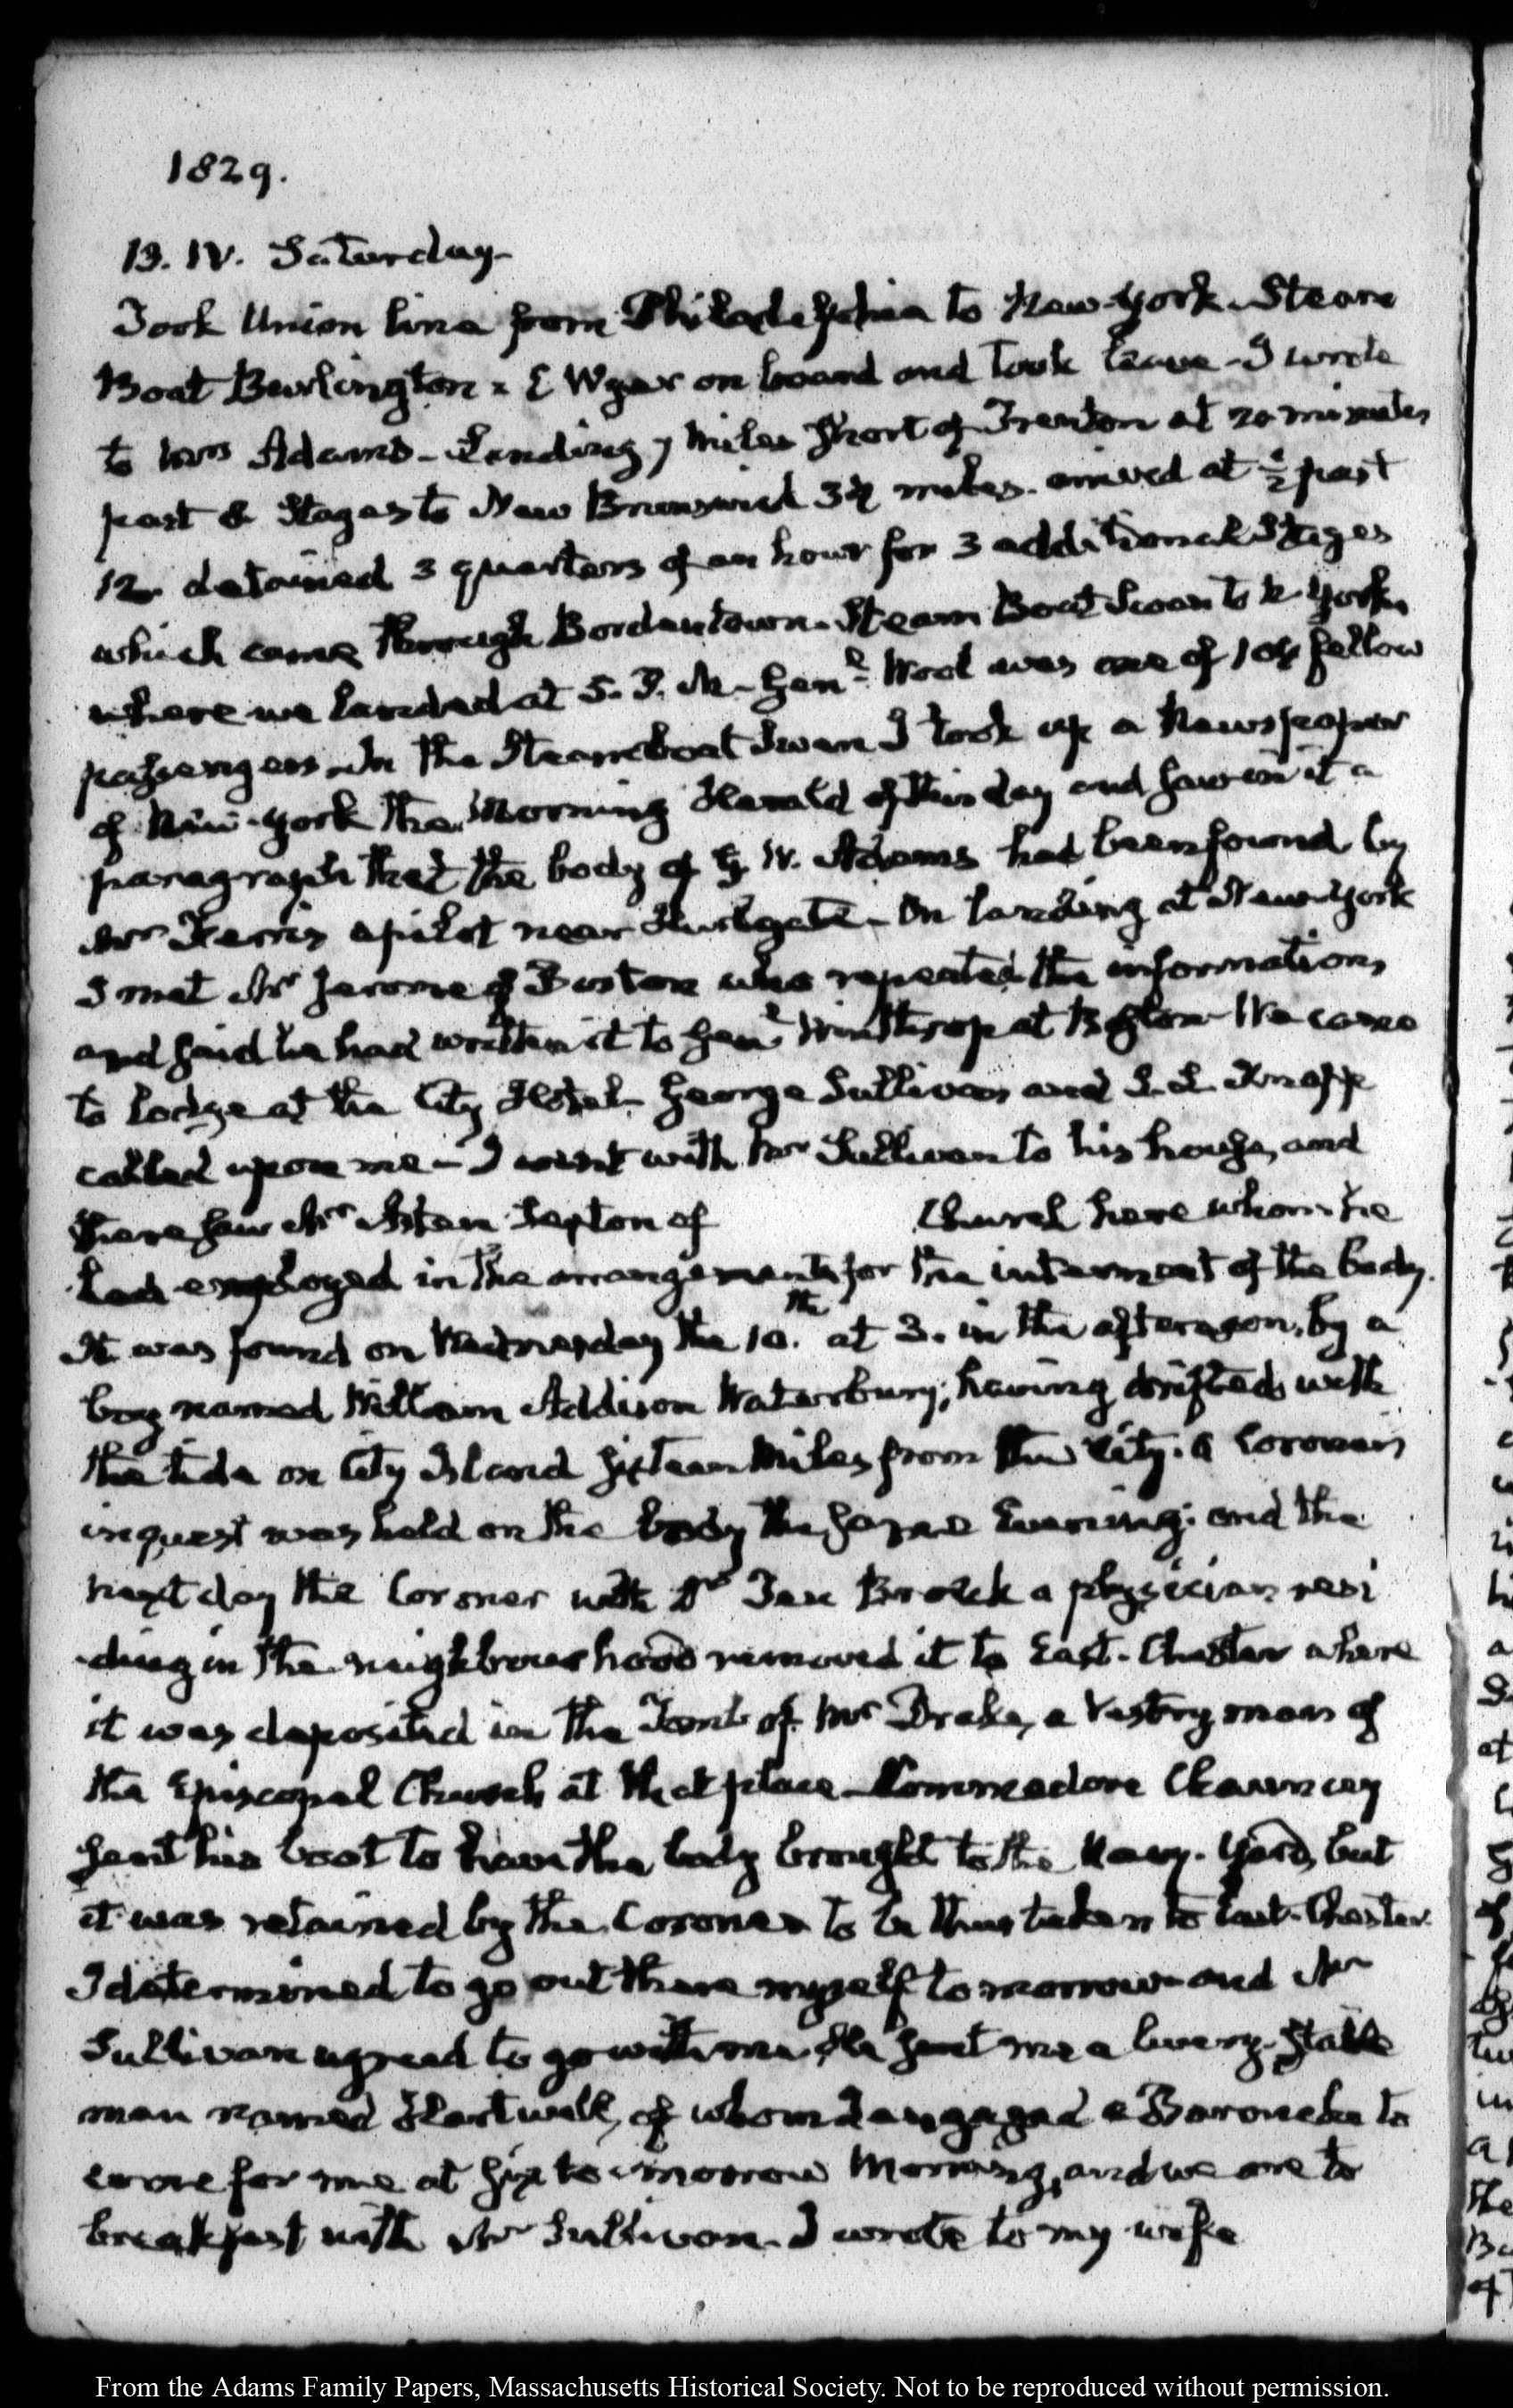 1829.
13. IV. Saturday-
Took Union line from Philadelphia to New-York. Steam
Boat Burlington - E Wyer on board and took leave - I wrote
to Mrs Adams - Landing 7 miles short of Trenton at 20 minutes
past 8 Stages to New Brunswick 34 miles. arrived at ½ past
12. detained 3 quarters of an hour for 3 additional Stages
which came through Bordentown. Steam Boat Swan to N. York,
where we landed at 5. P. M - Genl Wool was one of 104 fellow
passengers. In the Steamboat Swan I took up a Newspaper
of New-York the Morning Herald of this day and saw in it a
paragraph that the body of G. W. Adams had been found by
Mr Ferris a pilot near Hurlgate - On landing at New-York
I met Mr Jerome of Boston who repeated the information,
and said he had written it to Genl Winthrop at Boston We came
to lodge at the City Hotel. George Sullivan and S. L. Knapp
called upon me - I went with Mr Sullivan to his house, and
there saw Mr Sexton of Church here whom he
had employed in the arrangements for the interment of the body.
It was found on Wednesday the 10.th at 3. in the afternoon, by a
boy named William Addison Waterbury; having drifted with
the tide on City Island sixteen Miles from this City. A Coroner's
inquest was held on the body the same Evening: and the
next day the Coroner with Dr a physician resi
-ding in the neighbourhood removed it to East-Chester where
it was deposited in the Tomb of Mr Drake, a Vestry man of
the Episcopal Church at that place - Commodore Chauncey
sent his boat to have the body brought to the Navy-Yard, but
it was retained by the Coroner to be thus taken to East-Chester.
I determined to go out there myself to morrow and Mr
Sullivan agreed to go with me. He sent me a livery-stable
man named Hartwell, of whom I engaged a Barouche to
come for me at six to-morrow Morning, and we are to
breakfast with Mr Sullivan. I wrote to my wife
From the Adams Family Papers, Massachusetts Historical Society. Not to be reproduced without permission.